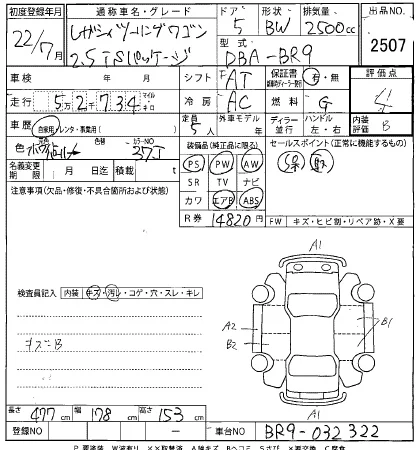 初度登録年月 通称車名・グレード ドア 形状 排気量 出品NO
22/7月 レガシィツーリングワゴン 5 BW 2500cc 2507
2.5 I Sパッケージ 型式 DBA-BR9
車検 年 月 シフト FAT 保証書 有・無 評価点
走行 5万2千734 マイル キロ 冷房 AC 燃料 G 4
車歴 自家用 レンタ・事業用 定員 5人 外車モデル 年 ディーラー 並行 ハンドル 左・右 内装評価 B
色 色替 カラーNO 37J
装備品(純正品に限る) セールスポイント(正常に機能するもの)
PS PW AW
名義変更期限 月 日迄 積載 t SR TV ナビ
注意事項(欠品・修復・不具合箇所および状態) カワ エアB ABS
R券 14820円 FW キズ・ヒビ割・リペア跡・X要
A1
検査員記入 内装 キズ・汚レ・コゲ・穴・スレ・キレ
A2 B1
キズ=B B2
A1
長さ 477cm 幅 178cm 高さ 153cm
登録NO ー 車台NO BR9-032322